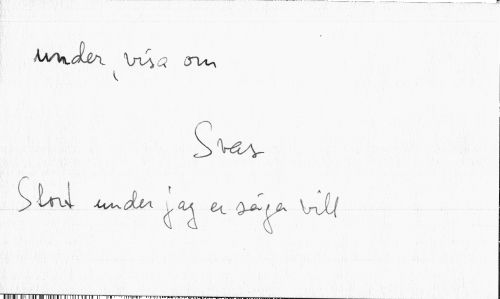 under, visa om
Sves
Stort under jag er säga vill